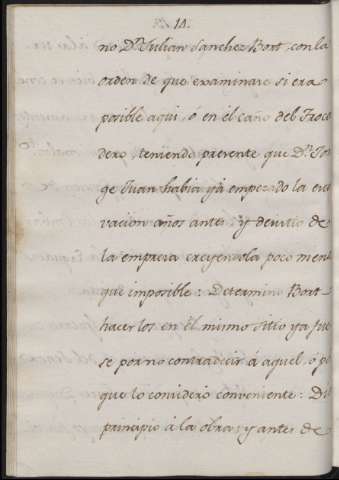 14.
no D.n Julian Sanchez Bort, con la
orden de que examinase si era
posible aqui, ó en el caño del Troca
dero, teniendo presente que D.n Jor
ge Juan habia yá empezado la exca
vacion años antes, y desistio de
la empresa creyendola poco menos
que imposible: Determino Bort
hacerlos en el mismo sitio ya fue
se por no contradecir á aquel, ó p.r
que lo considero conveniente: Dió
principio á la obra: y antes de